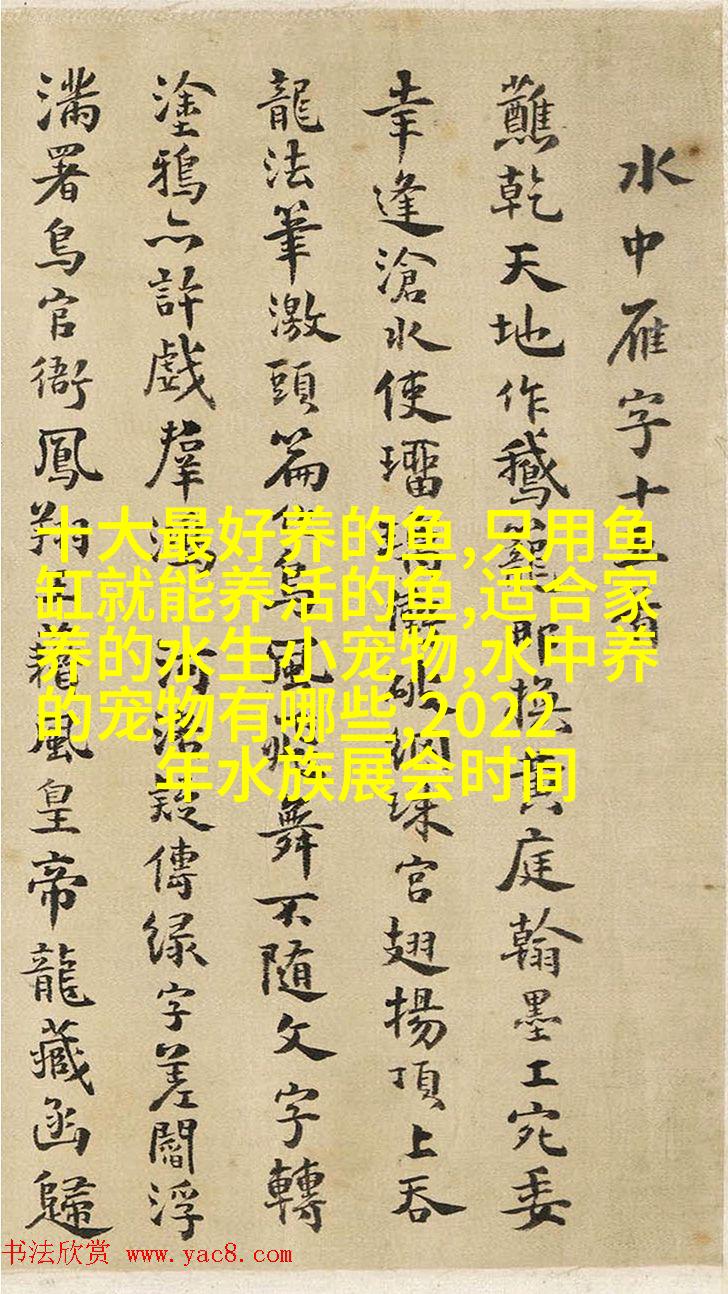 水中雁字十
蘸乾天地作鵝即換黃庭翰墨工宛委
幸逢滄水使珠宮翅揚頂上吞
龍法筆激頭篇風舞不随文字轉
塗鴉亦許戲羣鴻河洛疑傳緑字差閻浮
滿署鳥官衙鳳翔風皇帝龍藏函歸
十大最好养的鱼,只用鱼
缸就能养活的鱼,适合家
养的水生小宠物,水中养
的宠物有哪些,2022
年水族展会时间
书法欣赏 www.yac8.com